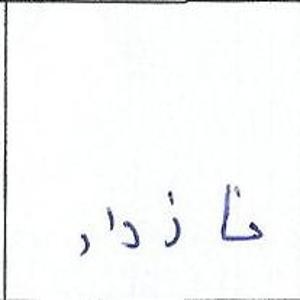 خا ز دار